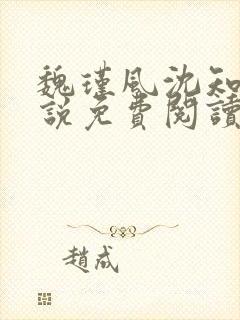 魏瑾風沈知
說免費閱讀
趙成